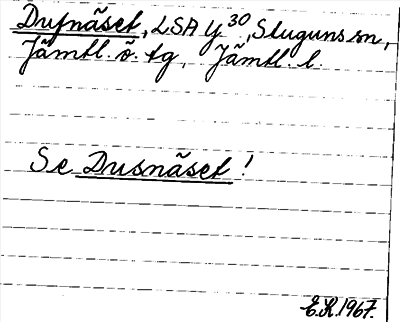 Dufnäset, LSA y 30, Stuguns sn,
Jämtl. ö. tg, Jämtl. l.
Se Dusnäset!
E.K. 1967.